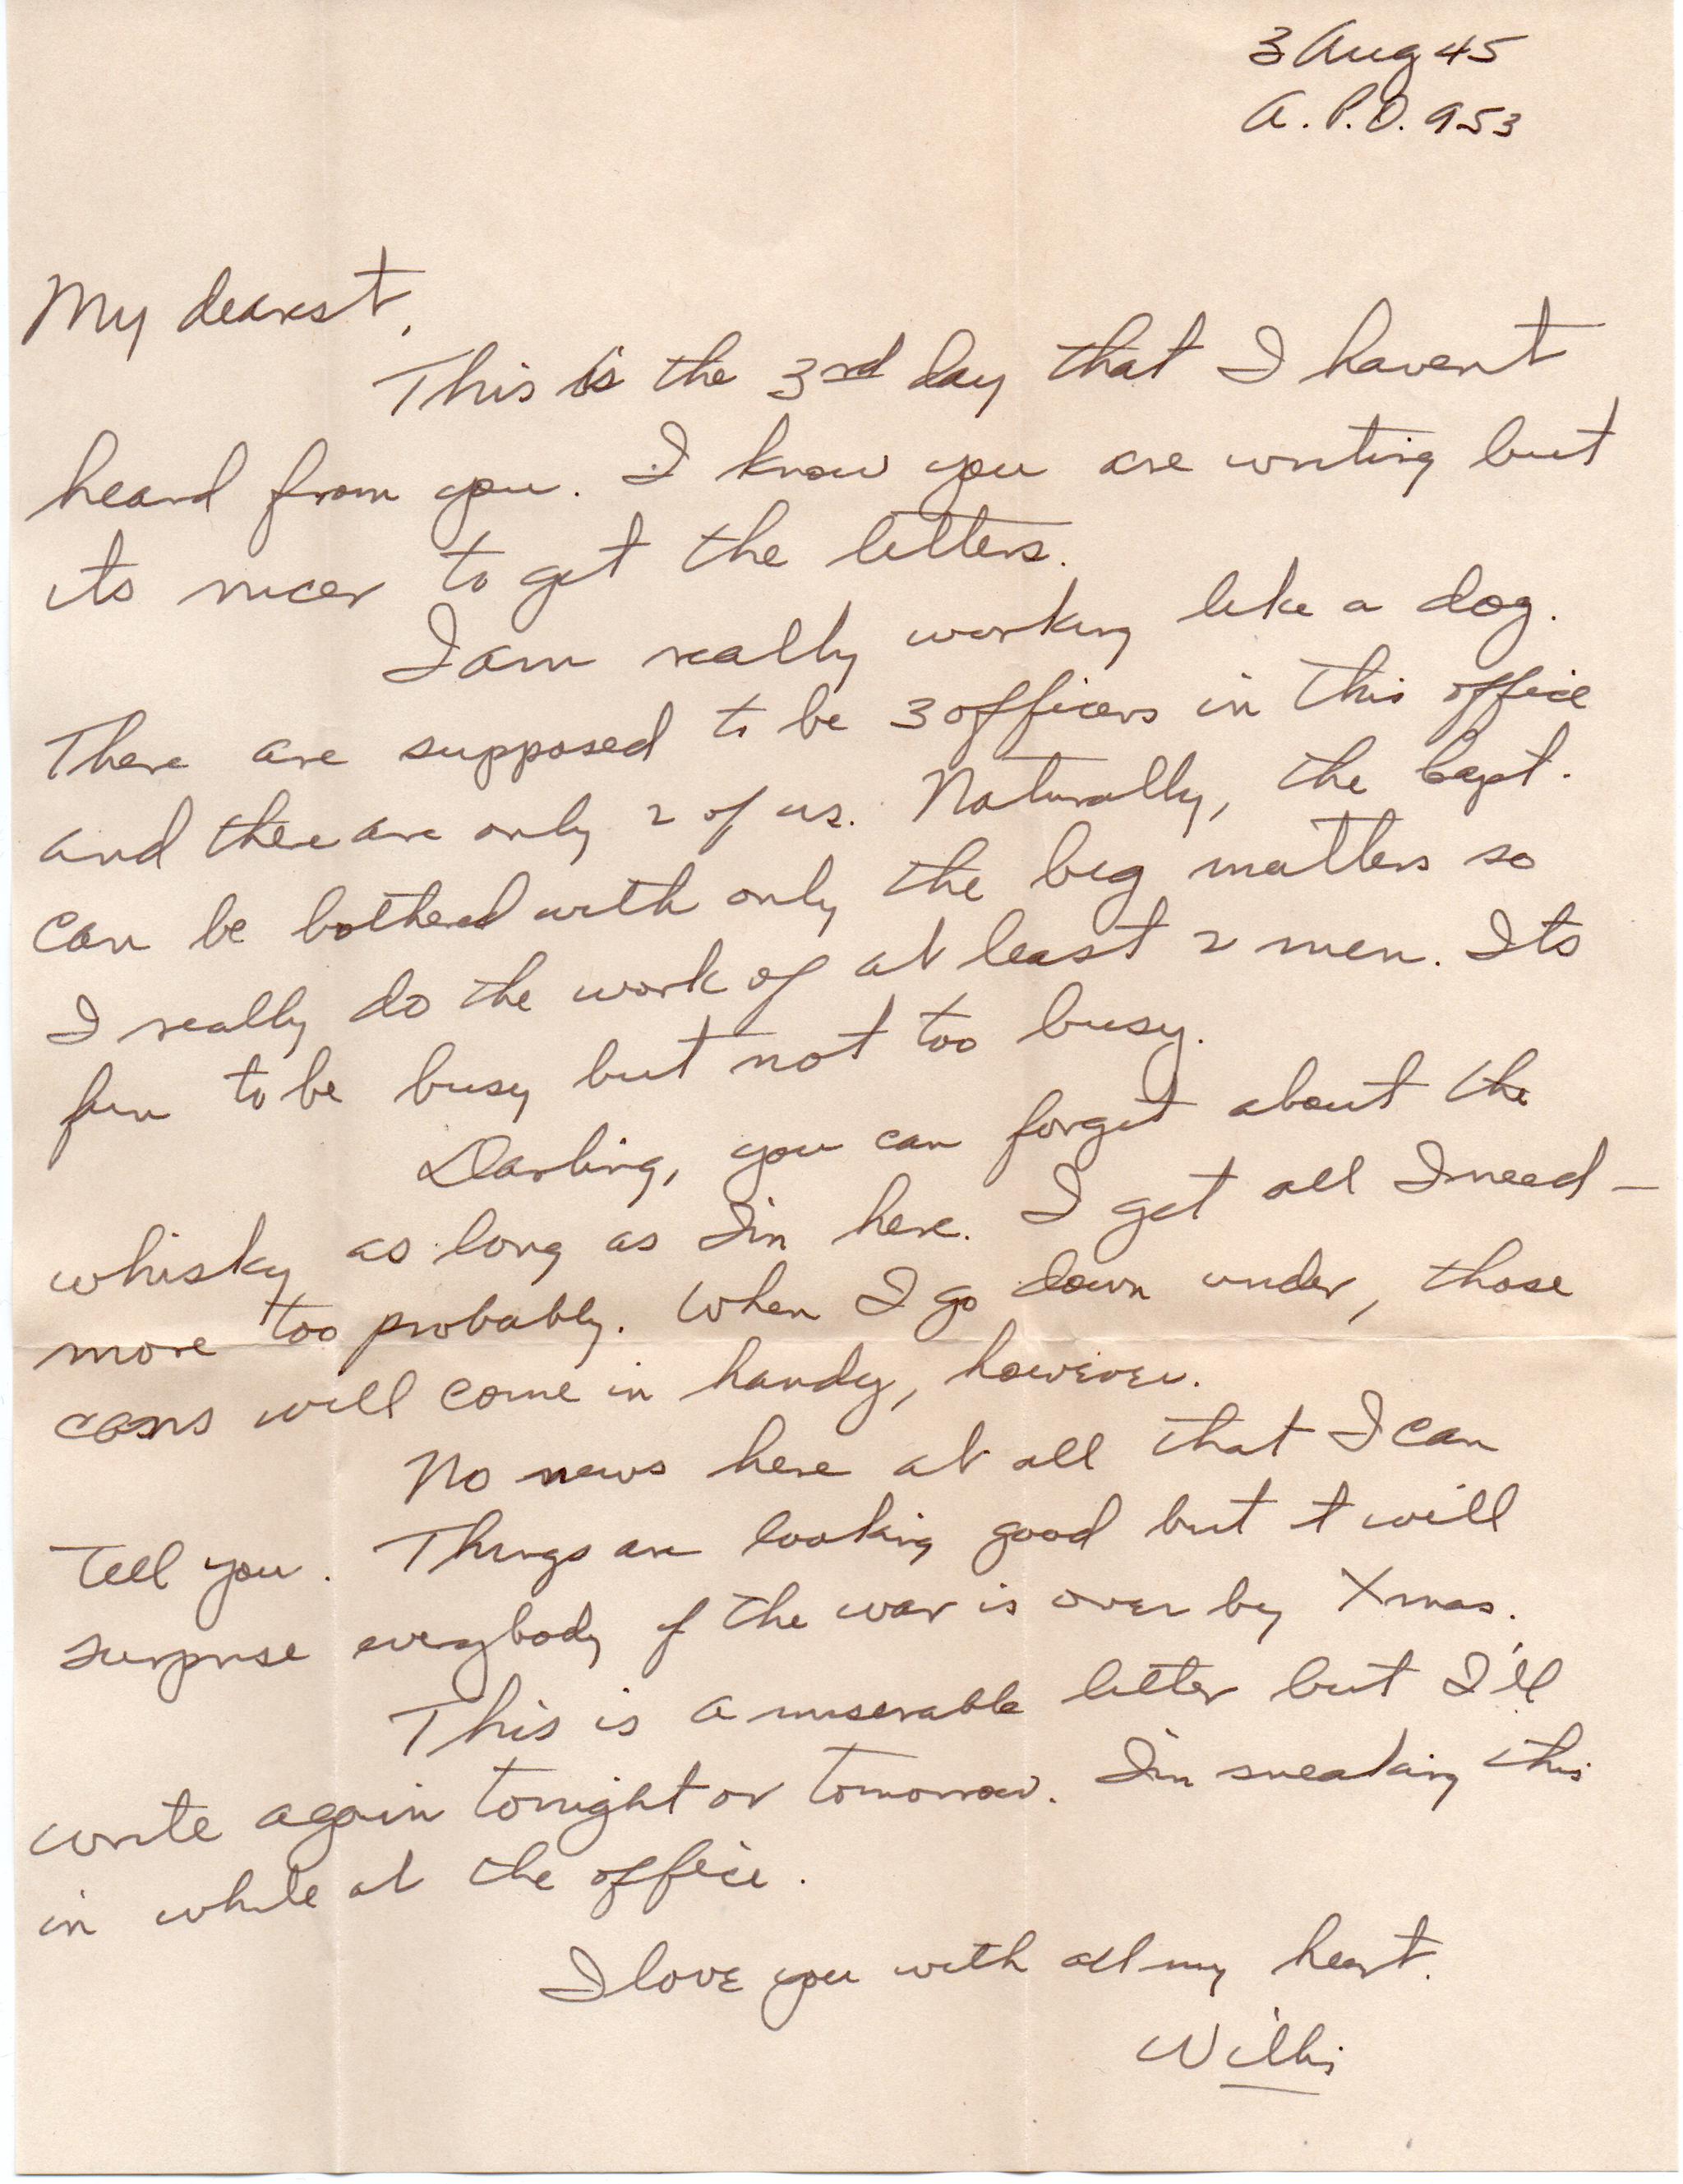 3 Aug 45
A.P.O. 953
My dearest,
This is the 3rd day that I havent
heard from you. I know you are writing but
its nicer to get the letters.
I am really working like a dog.
There are supposed to be 3 officers in this office
and there are only 2 of us. Naturally, the Capt.
can be bothered with only the big matters so
I really do the work of at least 2 men. Its
fun to be busy but not too busy.
Darling, you can forget about the
whisky as long as I'm here. I get all I need –
more too probably. When I go down under, those
cans will come in handy, however.
No news here at all that I can
tell you. Things are looking good but it will
surprise everybody if the war is over by Xmas.
This is a miserable letter but I'll
write again tonight or tomorrow. I'm sneaking this
in while at the office.
I love you with all my heart.
Willis